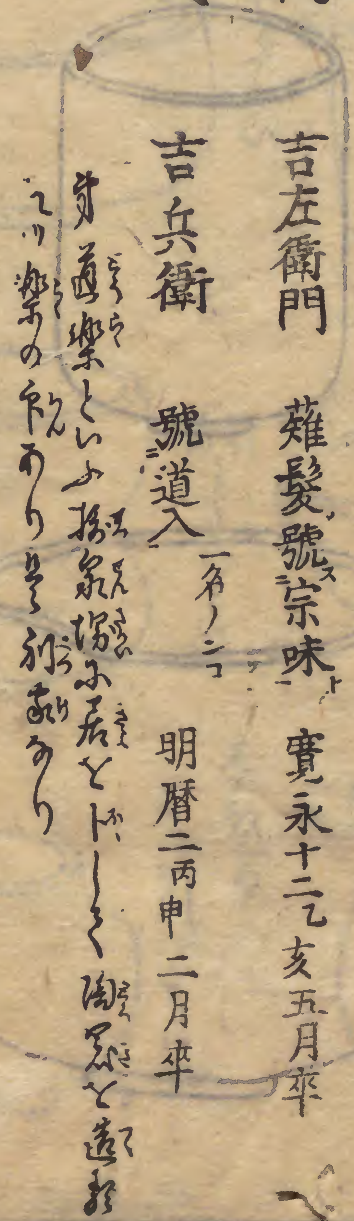 吉左衛門　薙髪號宗味ト　寛永十二乙亥五月卒
吉兵衛　號道入　一名ノンコ　明暦二丙申二月卒
弟道樂といふ摂泉堺に居を卜して陶器を造
樂の印あり是別家なり